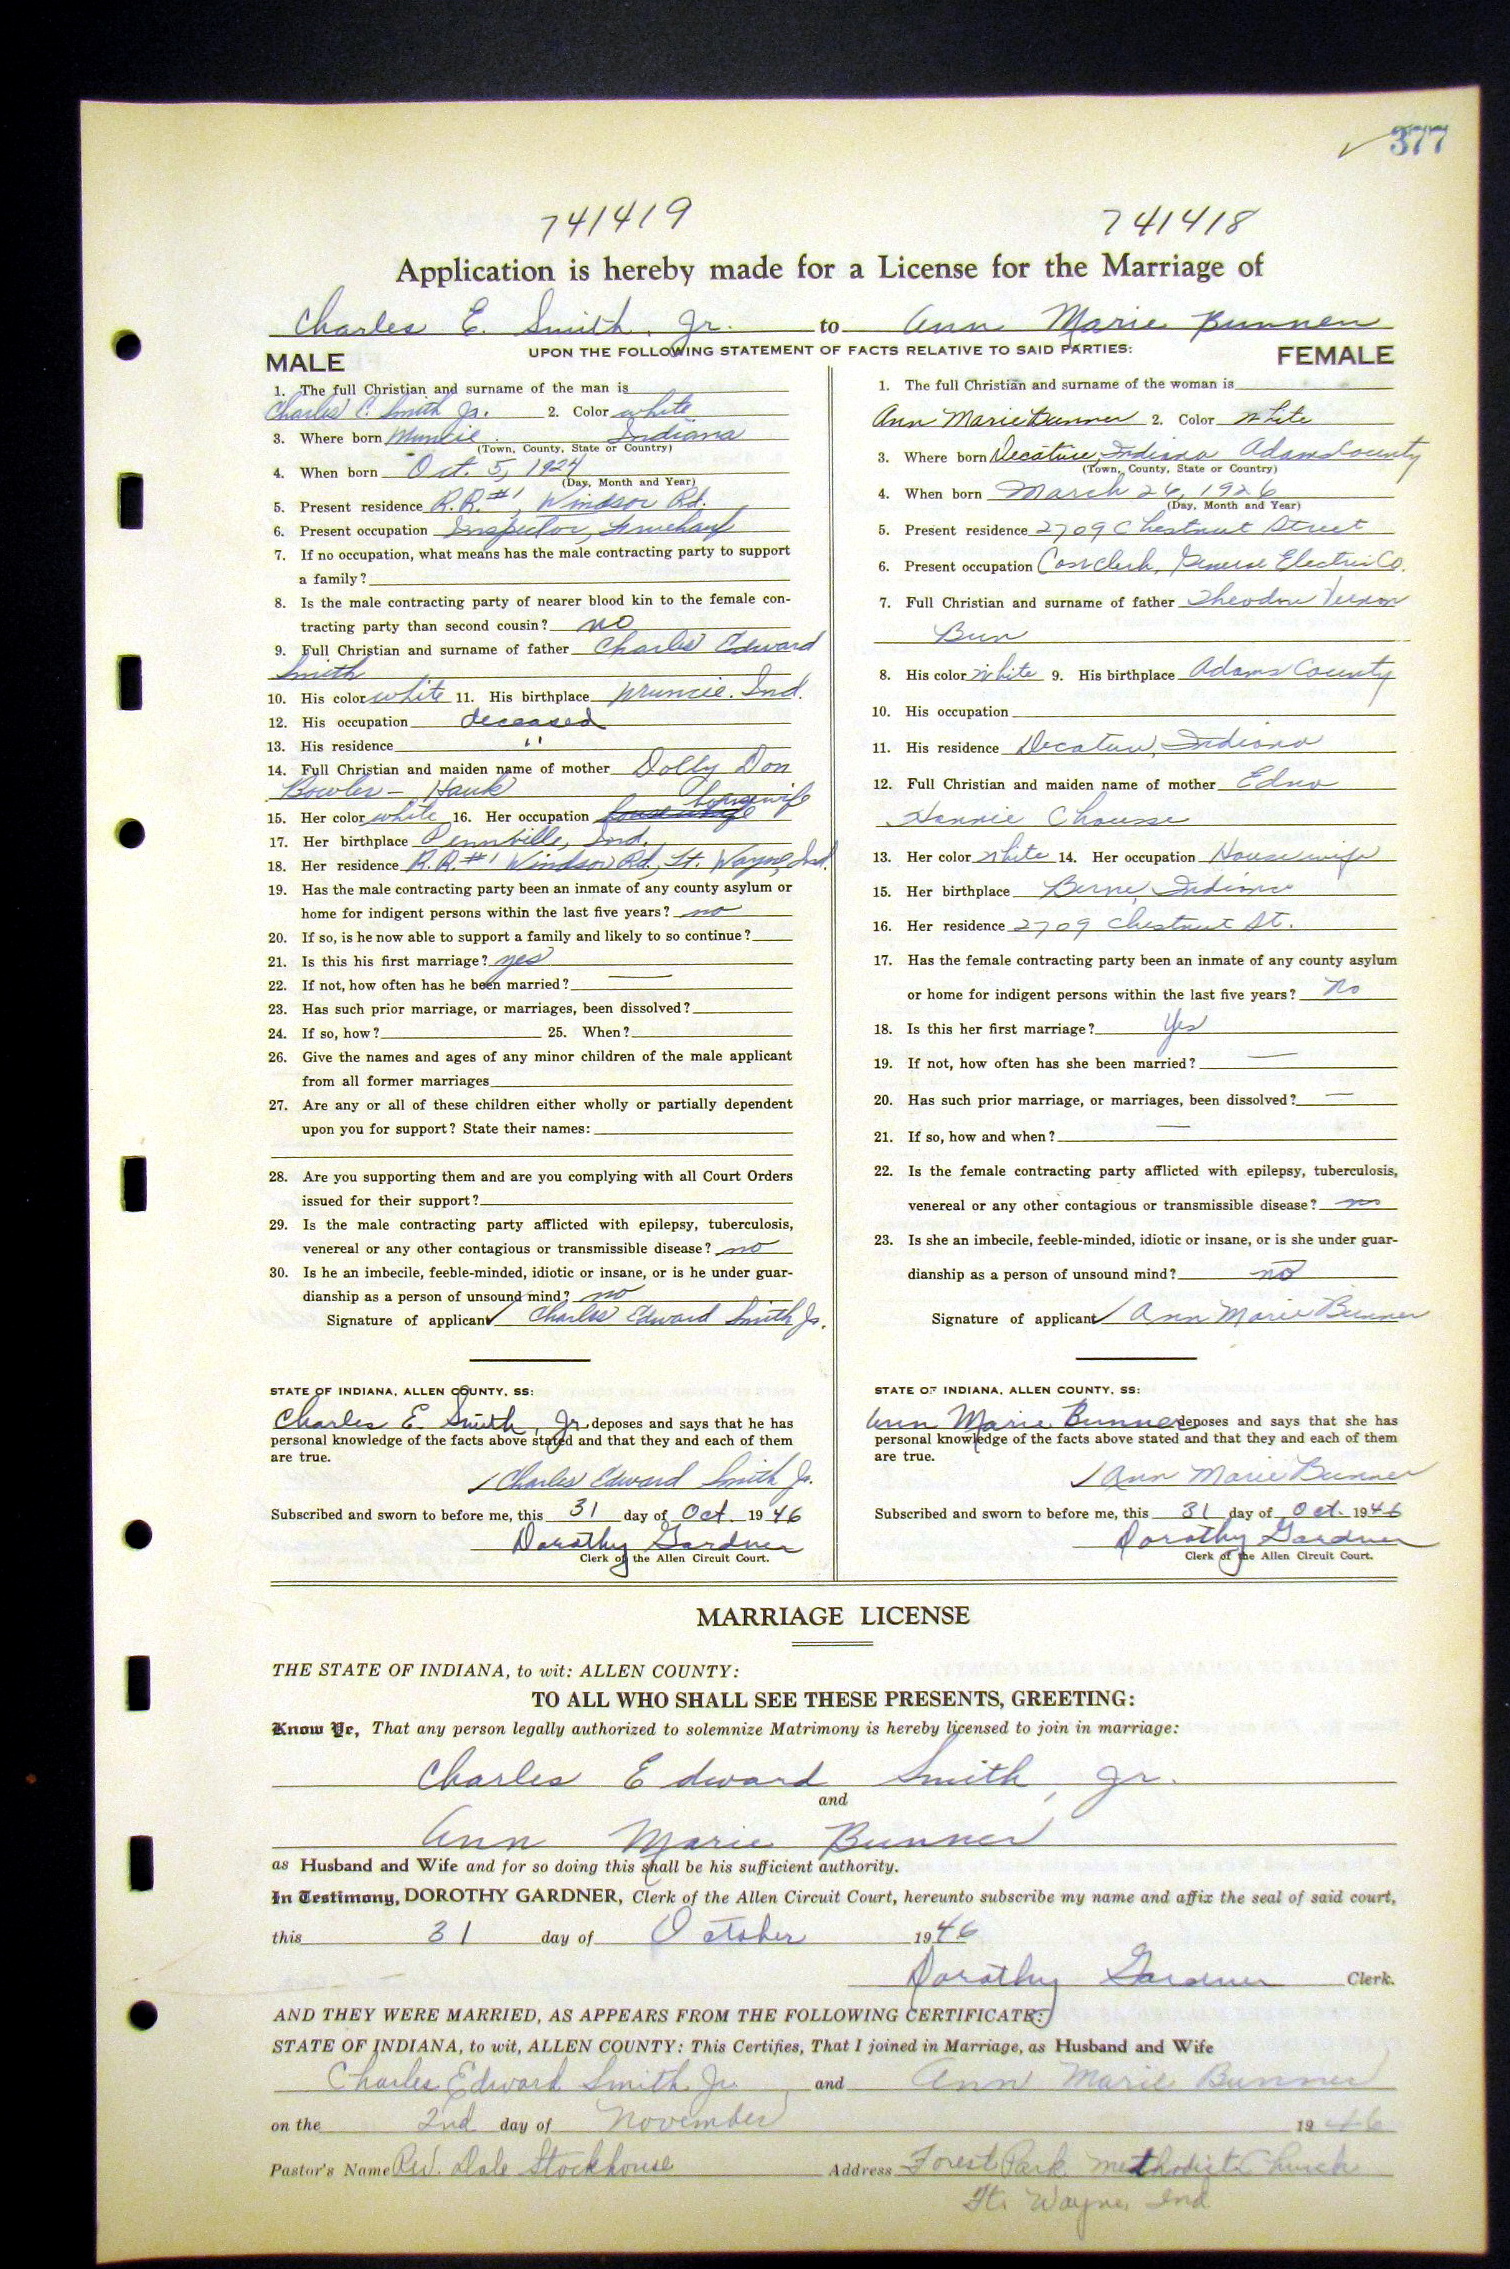 377
741419 741418
Application is hereby made for a License for the Marriage of
Charles E. Smith, Jr. to Ann Marie Bunner
UPON THE FOLLOWING STATEMENT OF FACTS RELATIVE TO SAID PARTIES:
MALE
1. The full Christian and surname of the man is
Charles E. Smith Jr. 2. Color white
3. Where born Muncie Indiana
(Town, County, State or Country)
4. When born Oct. 5, 1924
(Day, Month and Year)
5. Present residence R.R. #1, Windsor Rd.
6. Present occupation Inspector, Fruehauf
7. If no occupation, what means has the male contracting party to support
a family?
8. Is the male contracting party of nearer blood kin to the female con-
tracting party than second cousin? no
9. Full Christian and surname of father Charles Edward
Smith
10. His color white 11. His birthplace Muncie. Ind.
12. His occupation deceased
13. His residence "
14. Full Christian and maiden name of mother Dolly Don
Bowles - Hauk
15. Her color white 16. Her occupation housewife
17. Her birthplace Pennville, Ind.
18. Her residence R.R. #1 Windsor Rd, Ft. Wayne, Ind.
19. Has the male contracting party been an inmate of any county asylum or
home for indigent persons within the last five years? no
20. If so, is he now able to support a family and likely to so continue?
21. Is this his first marriage? yes
22. If not, how often has he been married? —
23. Has such prior marriage, or marriages, been dissolved?
24. If so, how? 25. When?
26. Give the names and ages of any minor children of the male applicant
from all former marriages
27. Are any or all of these children either wholly or partially dependent
upon you for support? State their names:
28. Are you supporting them and are you complying with all Court Orders
issued for their support?
29. Is the male contracting party afflicted with epilepsy, tuberculosis,
venereal or any other contagious or transmissible disease? no
30. Is he an imbecile, feeble-minded, idiotic or insane, or is he under guar-
dianship as a person of unsound mind? no
Signature of applicant Charles Edward Smith Jr.
STATE OF INDIANA, ALLEN COUNTY, SS:
Charles E. Smith, Jr. deposes and says that he has
personal knowledge of the facts above stated and that they and each of them
are true.
Charles Edward Smith Jr.
Subscribed and sworn to before me, this 31 day of Oct. 1946
Dorothy Gardner
Clerk of the Allen Circuit Court.
FEMALE
1. The full Christian and surname of the woman is
Ann Marie Bunner 2. Color White
3. Where born Decatur, Indiana Adams County
(Town, County, State or Country)
4. When born March 26, 1926
(Day, Month and Year)
5. Present residence 2709 Chestnut Street
6. Present occupation Clerk, General Electric Co.
7. Full Christian and surname of father Theodore Vernon
Bun
8. His color White 9. His birthplace Adams County
10. His occupation
11. His residence Decatur, Indiana
12. Full Christian and maiden name of mother Edna
13. Her color White 14. Her occupation Housewife
15. Her birthplace Berne, Indiana
16. Her residence 2709 Chestnut St.
17. Has the female contracting party been an inmate of any county asylum
or home for indigent persons within the last five years? No
18. Is this her first marriage? Yes
19. If not, how often has she been married? —
20. Has such prior marriage, or marriages, been dissolved? —
21. If so, how and when? —
22. Is the female contracting party afflicted with epilepsy, tuberculosis,
venereal or any other contagious or transmissible disease? no
23. Is she an imbecile, feeble-minded, idiotic or insane, or is she under guar-
dianship as a person of unsound mind? no
Signature of applicant Ann Marie Bunner
STATE OF INDIANA, ALLEN COUNTY, SS:
Ann Marie Bunner deposes and says that she has
personal knowledge of the facts above stated and that they and each of them
are true.
Ann Marie Bunner
Subscribed and sworn to before me, this 31 day of Oct. 1946
Dorothy Gardner
Clerk of the Allen Circuit Court.
MARRIAGE LICENSE
THE STATE OF INDIANA, to wit: ALLEN COUNTY:
TO ALL WHO SHALL SEE THESE PRESENTS, GREETING:
Know Ye, That any person legally authorized to solemnize Matrimony is hereby licensed to join in marriage:
Charles Edward Smith, Jr.
and
Ann Marie Bunner
as Husband and Wife and for so doing this shall be his sufficient authority.
In Testimony, DOROTHY GARDNER, Clerk of the Allen Circuit Court, hereunto subscribe my name and affix the seal of said court,
this 31 day of October 1946
Dorothy Gardner Clerk.
AND THEY WERE MARRIED, AS APPEARS FROM THE FOLLOWING CERTIFICATE:
STATE OF INDIANA, to wit, ALLEN COUNTY: This Certifies, That I joined in Marriage, as Husband and Wife
Charles Edward Smith Jr. and Ann Marie Bunner
on the 2nd day of November 1946
Pastor's Name Rev. Dale Stockhouse Address Forest Park Methodist Church
Ft. Wayne, Ind